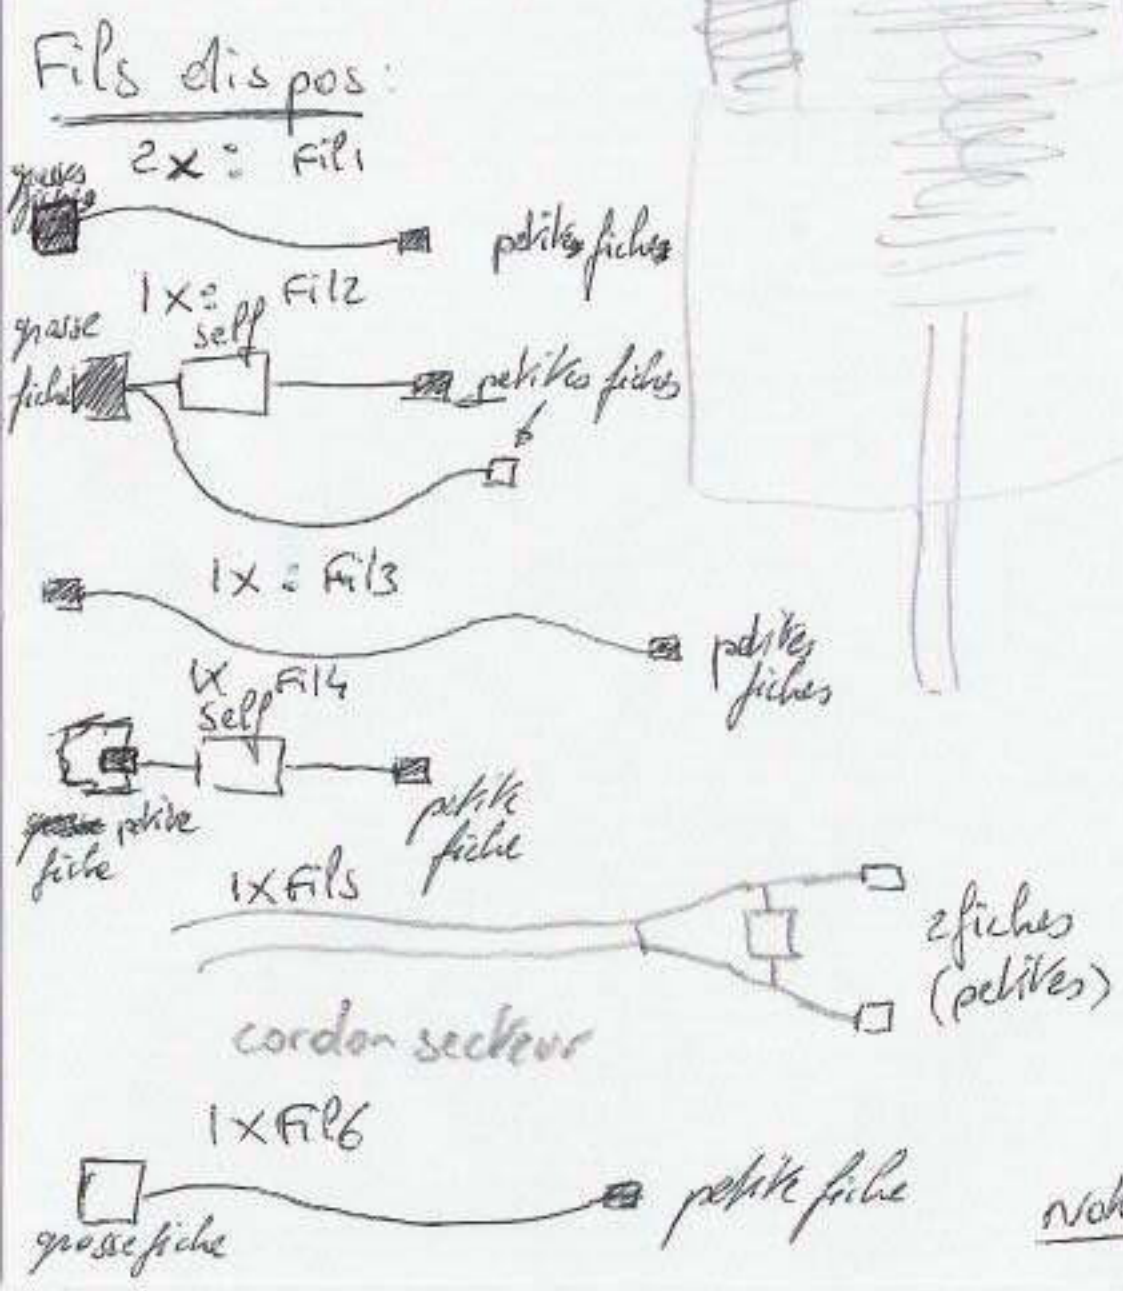 Fils dispos:
2x: Fil1
grosses
fiches
petites fiches
1x: Fil2
self
grosse
fiche
petites fiches
1x: Fil3
petites
fiches
1x Fil4
self
petite
fiche
petite
fiche
1x Fil5
2 fiches
(petites)
cordon secteur
1x Fil6
petite fiche
grosse fiche